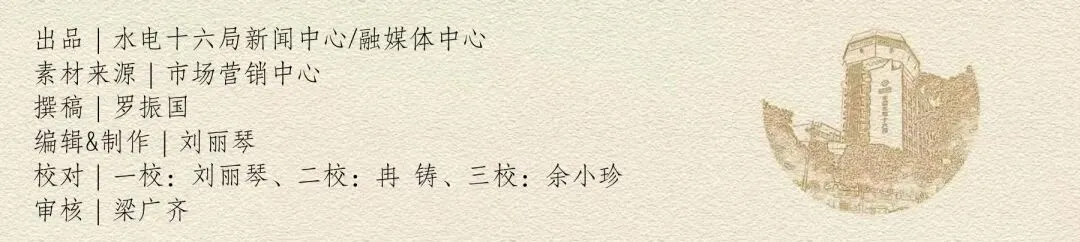 出品 | 水电十六局新闻中心/融媒体中心
素材来源 | 市场营销中心
撰稿 | 罗振国
编辑&制作 | 刘丽琴
校对 | 一校：刘丽琴、二校：冉 铸、三校：余小珍
审核 | 梁广齐